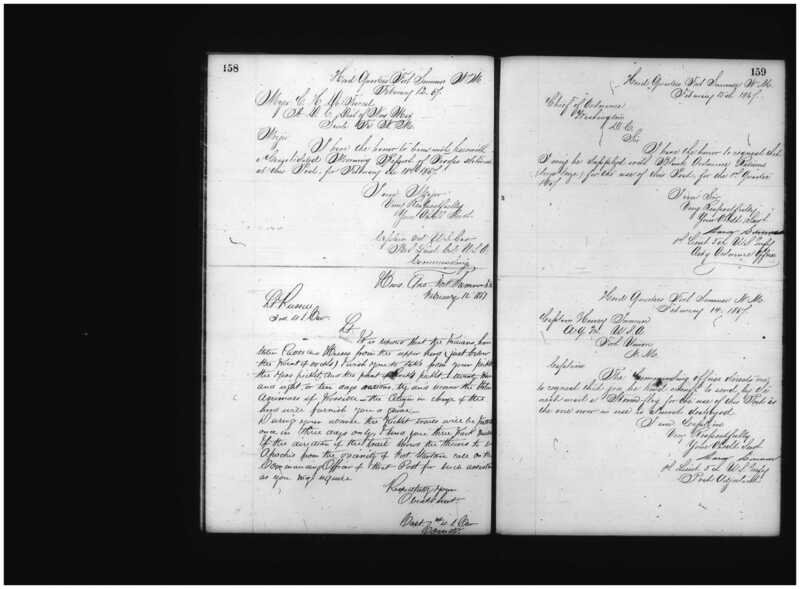 158
Head Quarters Fort Sumner N. M.
February 12. 67.
Major C. H. De Forrest
A. A. G. Dist of New Mex
Santa Fe N. M.
Major
I have the honor to transmit herewith
a Consolidated Morning Report of Troops stationed
at this Post, for February the 1867
I am Major
Very Respectfully
Your Obdt Servt
Captain 3rd U.S. Cav
Bvt Lieut Col U.S.A.
Commanding
Fort Sumner
February 12 1867
Lt Russell
3rd U.S. Cav
Lt
It is reported that the Indians have
stolen from the upper herd (just below
the Point of rocks) I wish you to take from your picket
the picket, and the picket
and eight or ten days rations, try and recover the
the Citizen in charge of the
herd will furnish you a guide.
During your absence the Picket will be
once in three days only. Send you three
if the direction of the trail shows the thieves to be
Apaches from the vicinity of Fort Stanton call on the
Commanding Officer of that Post for such assistance
as you may require
Respectfully Your
Obedt Servt
Capt 3rd U.S. Cav
159
Head Quarters Fort Sumner N. M.
February 1867.
Chief of Ordnance
Washington
D. C.
Sir
I have the honor to request that
I may be supplied with Blank Ordnance Returns
for the use of this Post, for the 1st Quarter
1867
I am Sir
Very Respectfully
Your Obdt Servt
1st Lieut 5th U.S. Infty
Actg Ordnance Officer
Head Quarters Fort Sumner N. M.
February 14. 1867.
Captain Henry Inman
A. Q. M. U. S. A.
Fort Union
N. M.
Captain
The Commanding officer directs me
to request that you be kind enough to send, by
a Storm flag for the use of this Post as
the one now in use is almost destroyed
I am Captain
Very Respectfully
Your Obdt Servt
1st Lieut 5th U.S. Infty
Post Adjutant